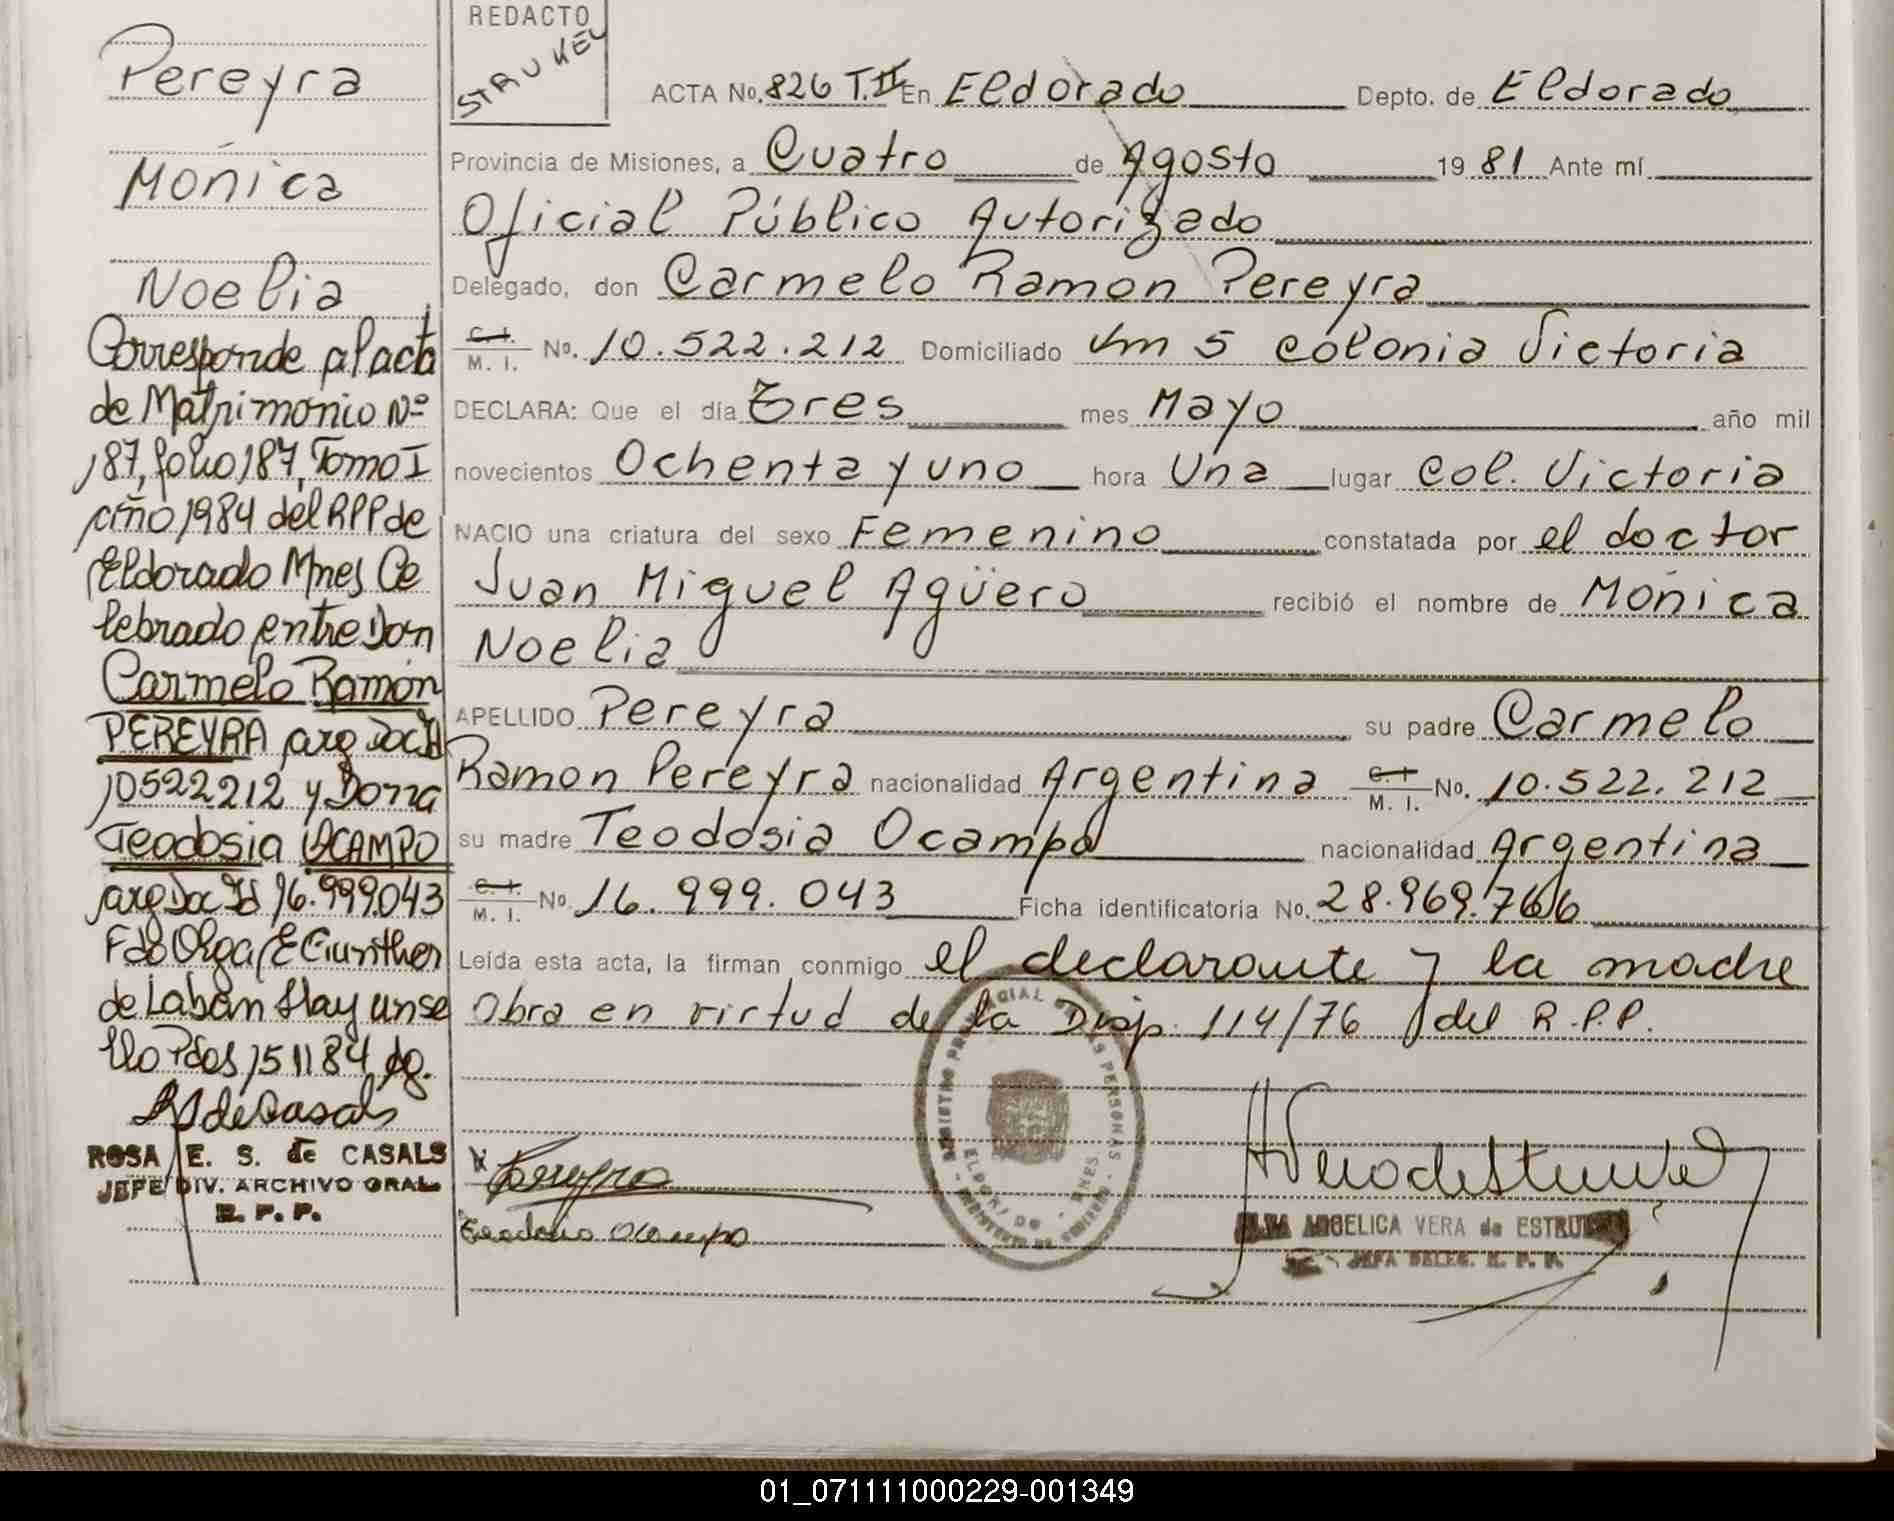 Pereyra
Mónica
Noelia
Corresponde al acta
de Matrimonio Nº
187, folio 187, Tomo I
año 1984 del RPP de
Eldorado Mnes Ce
lebrado entre Don
Carmelo Ramón
PEREYRA arg Doc Id
10522212 y Donna
Teodosia OCAMPO
arg Doc Id 16.999.043
Fdo Olga E Gunther
de Laban Hay un se
llo Pdos 151184
ROSA E. S. de CASALS
JEFE DIV. ARCHIVO GRAL.
R. P. P.
REDACTO
STRUKEL
ACTA No. 826 T.II En Eldorado Depto. de Eldorado
Provincia de Misiones, a Cuatro de Agosto 19 81 Ante mí
Oficial Público Autorizado
Delegado, don Carmelo Ramon Pereyra
C. I. / M. I. No. 10.522.212 Domiciliado Km 5 Colonia Victoria
DECLARA: Que el día Tres mes Mayo año mil
novecientos Ochenta y uno hora Una lugar Col. Victoria
NACIO una criatura del sexo Femenino constatada por el doctor
Juan Miguel Agüero recibió el nombre de Mónica
Noelia
APELLIDO Pereyra su padre Carmelo
Ramon Pereyra nacionalidad Argentina C. I. / M. I. No. 10.522.212
su madre Teodosia Ocampo nacionalidad Argentina
C. I. / M. I. No. 16.999.043 Ficha identificatoria No. 28.969.766
Leída esta acta, la firman conmigo el declarante y la madre
Obra en virtud de la Disp. 114/76 del R.P.P.
Pereyra
Teodosia Ocampo
ANGELICA VERA de
JEFA DELEG. R. P. P.
01_071111000229-001349